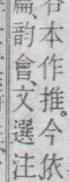 各本作推。今依
篇、韵會、文選注